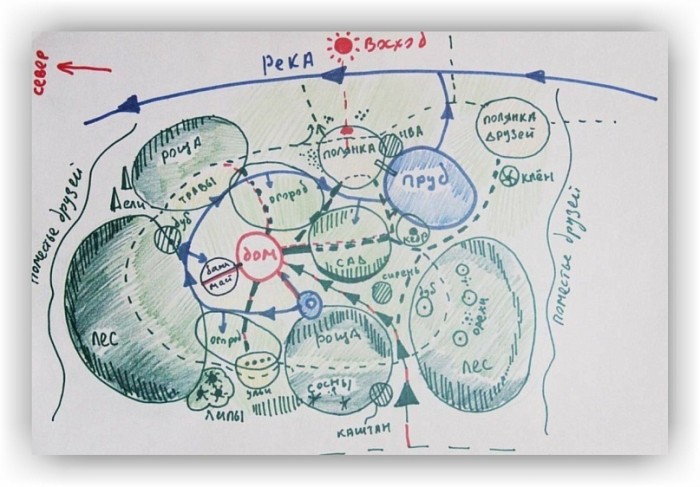 ВОСХОД
север
РЕКА
РОЩА
ПОЛЯНКА
ИВА
ПОЛЯНКА
ДРУЗЕЙ
ТРАВЫ
огород
ПРУД
КЛЁН
ели
дуб
поместье друзей
ДОМ
САД
кедр
баня
май
сирень
поместье друзей
ЛЕС
РОЩА
дуб
орехи
ЛЕС
ульи
СОСНЫ
ЛИПЫ
КАШТАН